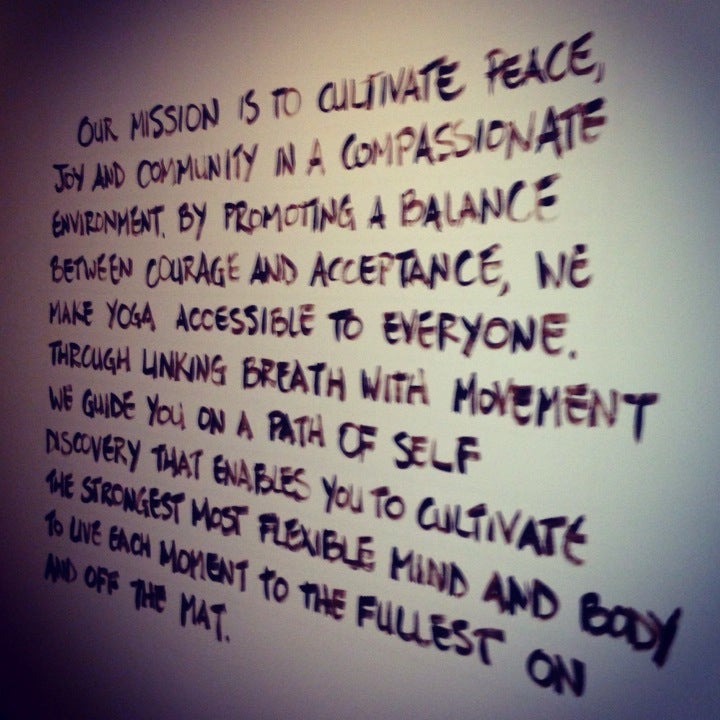 OUR MISSION IS TO CULTIVATE PEACE,
JOY AND COMMUNITY IN A COMPASSIONATE
ENVIRONMENT. BY PROMOTING A BALANCE
BETWEEN COURAGE AND ACCEPTANCE, WE
MAKE YOGA ACCESSIBLE TO EVERYONE.
THROUGH LINKING BREATH WITH MOVEMENT
WE GUIDE YOU ON A PATH OF SELF
DISCOVERY THAT ENABLES YOU TO CULTIVATE
THE STRONGEST MOST FLEXIBLE MIND AND BODY
TO LIVE EACH MOMENT TO THE FULLEST ON
AND OFF THE MAT.